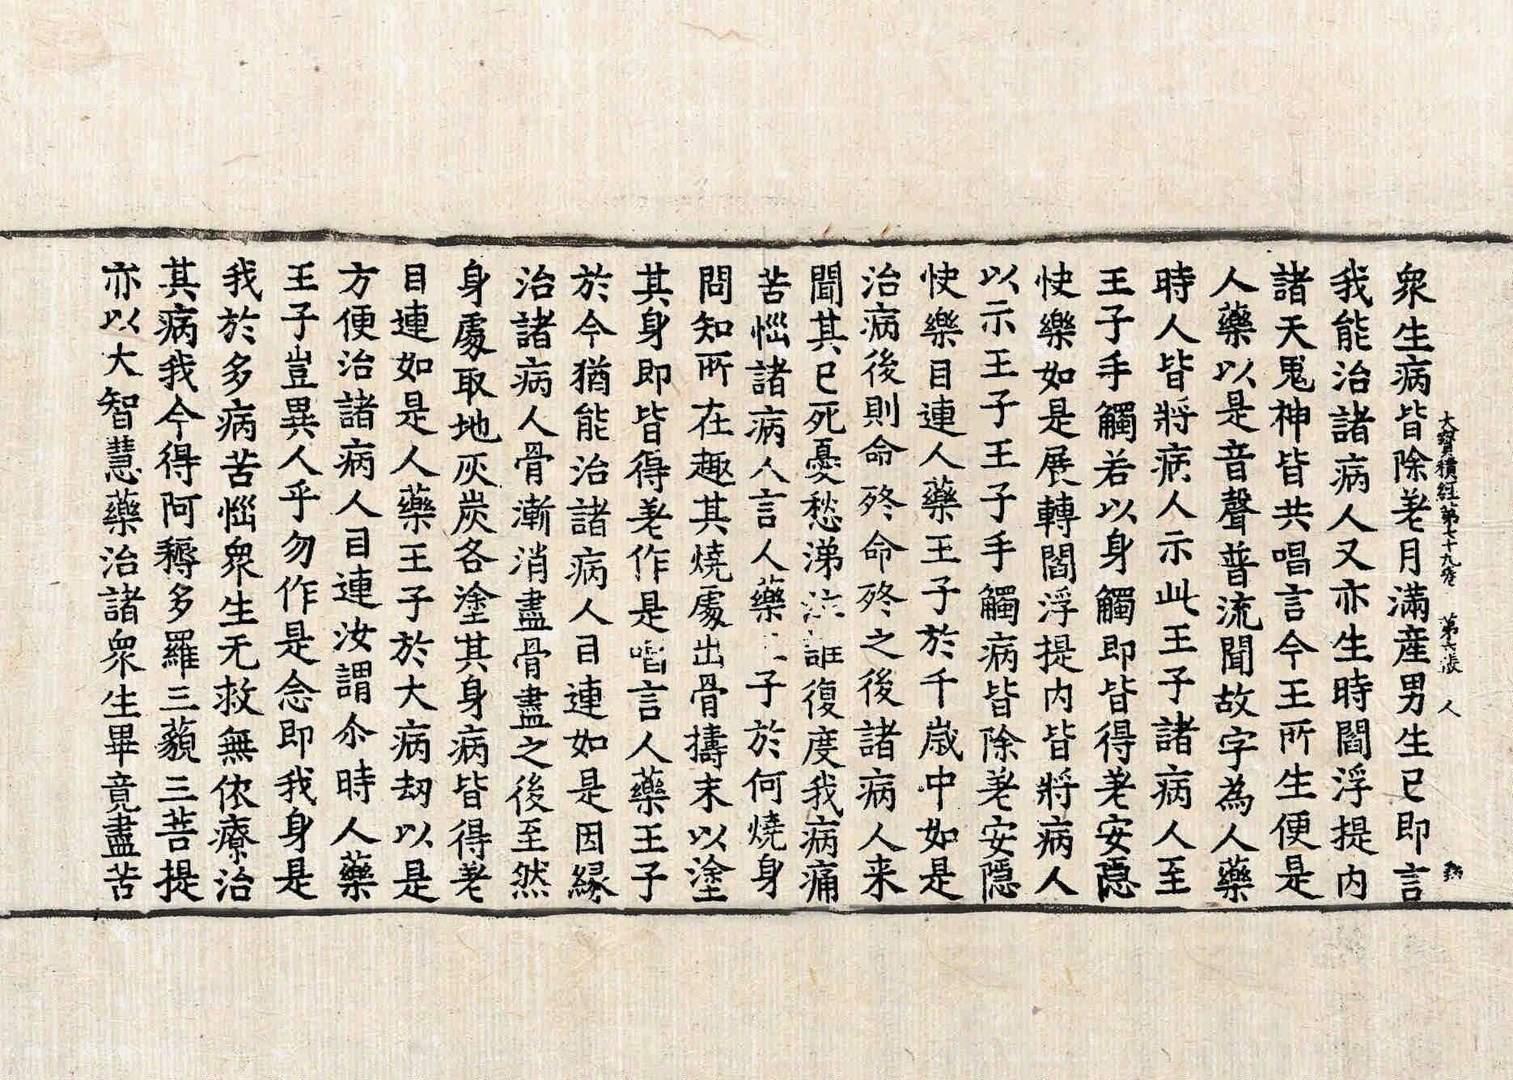 大寶積經第七十九卷 第六張 人
衆生病皆除差月滿産男生已即言
我能治諸病人又亦生時閻浮提内
諸天鬼神皆共唱言今王所生便是
人藥以是音聲普流聞故字為人藥
時人皆將病人示此王子諸病人至
王子手觸若以身觸即皆得差安隱
快樂如是展轉閻浮提内皆將病人
以示王子王子手觸病皆除差安隱
快樂目連人藥王子於千歲中如是
治病後則命終命終之後諸病人来
聞其已死憂愁涕復度我病痛
苦惱諸病人言人藥子於何燒身
問知所在趣其燒處出骨擣末以塗
其身即皆得差作是唱言人藥王子
於今猶能治諸病人目連如是因緣
治諸病人骨漸消盡骨盡之後至然
身處取地灰炭各塗其身病皆得差
目連如是人藥王子於大病劫以是
方便治諸病人目連汝謂尒時人藥
王子豈異人乎勿作是念即我身是
我於多病苦惱衆生无救無依療治
其病我今得阿耨多羅三藐三菩提
亦以大智慧藥治諸衆生畢竟盡苦